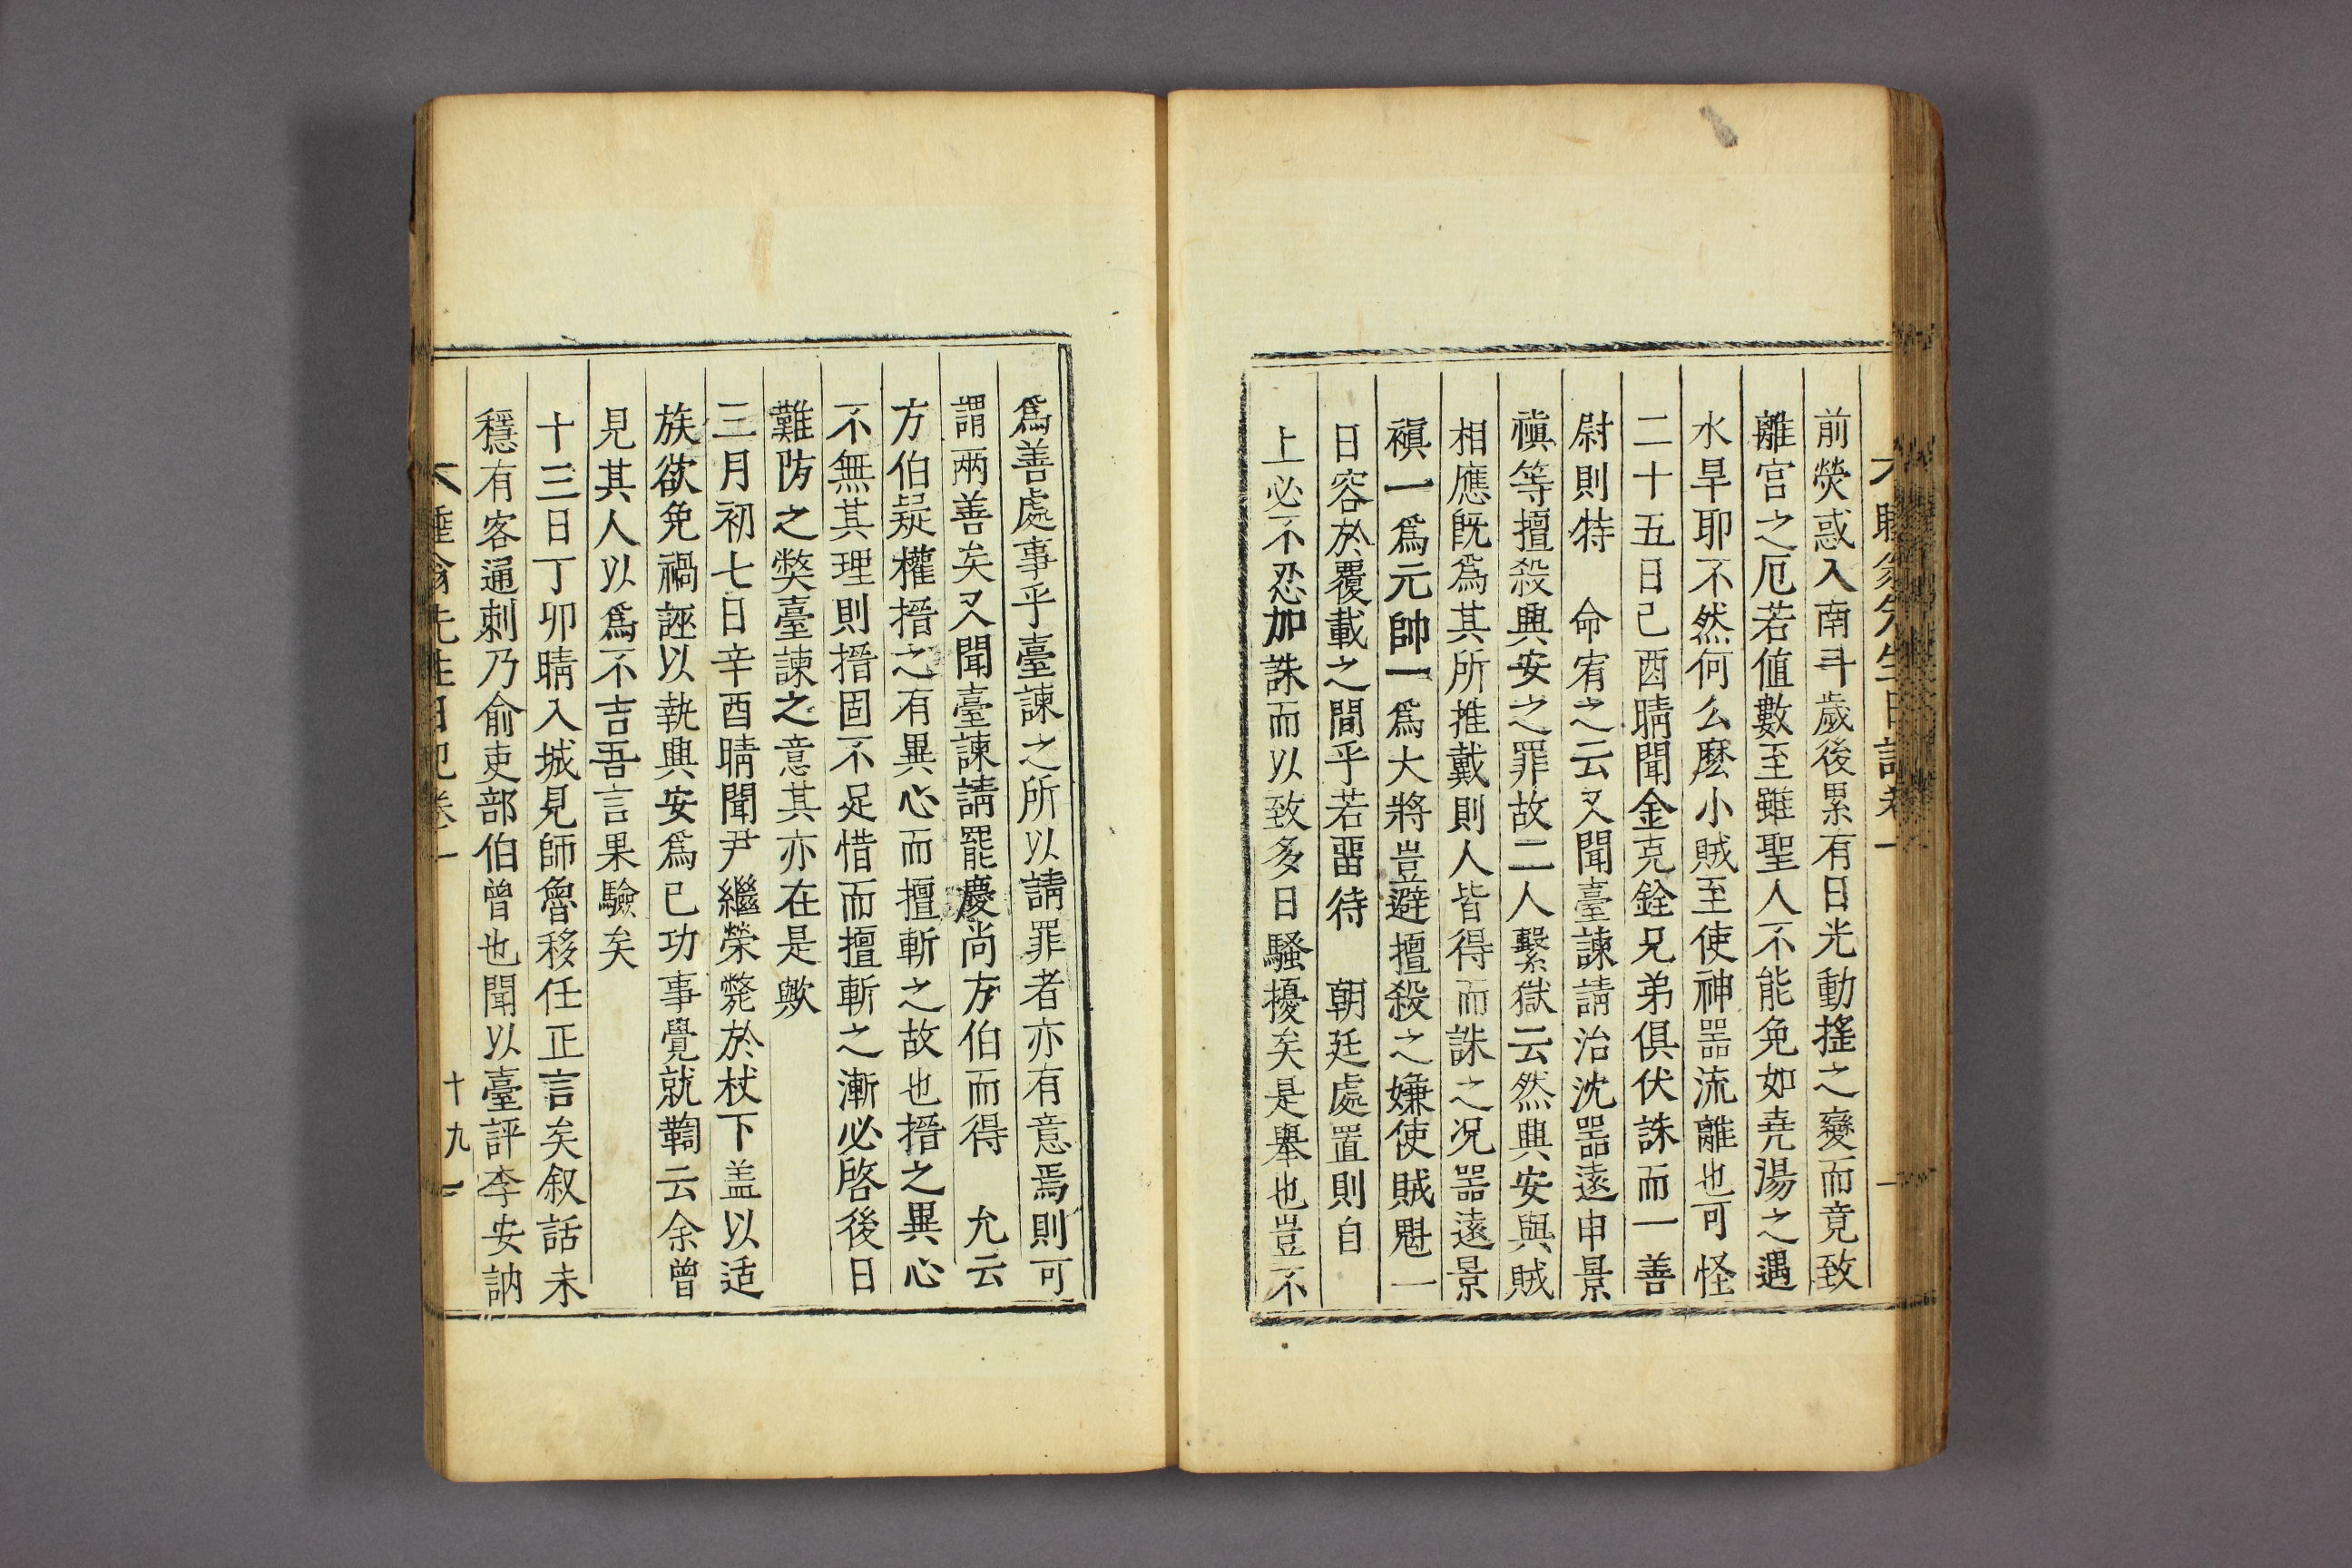 前熒惑入南斗歲後累有日光動搖之變而竟致
離宮之厄若值數至雖聖人不能免如堯湯之遇
水旱耶不然何么麽小賊至使神器流離也可怪
二十五日己酉晴聞金克銓兄弟俱伏誅而一善
尉則特　命宥之云又聞臺諫請治沈器遠申景
禛等擅殺興安之罪故二人繫獄云然興安與賊
相應旣爲其所推戴則人皆得而誅之况器遠景
禛一爲元帥一爲大將豈避擅殺之嫌使賊魁一
日容於覆載之間乎若畱待　朝廷處置則自
上必不忍加誅而以致多日騷擾矣是擧也豈不
爲善處事乎臺諫之所以請罪者亦有意焉則可
謂兩善矣又聞臺諫請罷慶尙方伯而得　允云
方伯疑權搢之有異心而擅斬之故也搢之異心
不無其理則搢固不足惜而擅斬之漸必啓後日
難防之獘臺諫之意其亦在是歟
三月初七日辛酉晴聞尹繼榮斃於杖下盖以适
族欲免禍誣以執興安爲已功事覺就鞫云余曾
見其人以爲不吉吾言果驗矣
十三日丁卯晴入城見師魯移任正言矣叙話未
穩有客通刺乃俞吏部伯曾也聞以臺評李安訥
十九